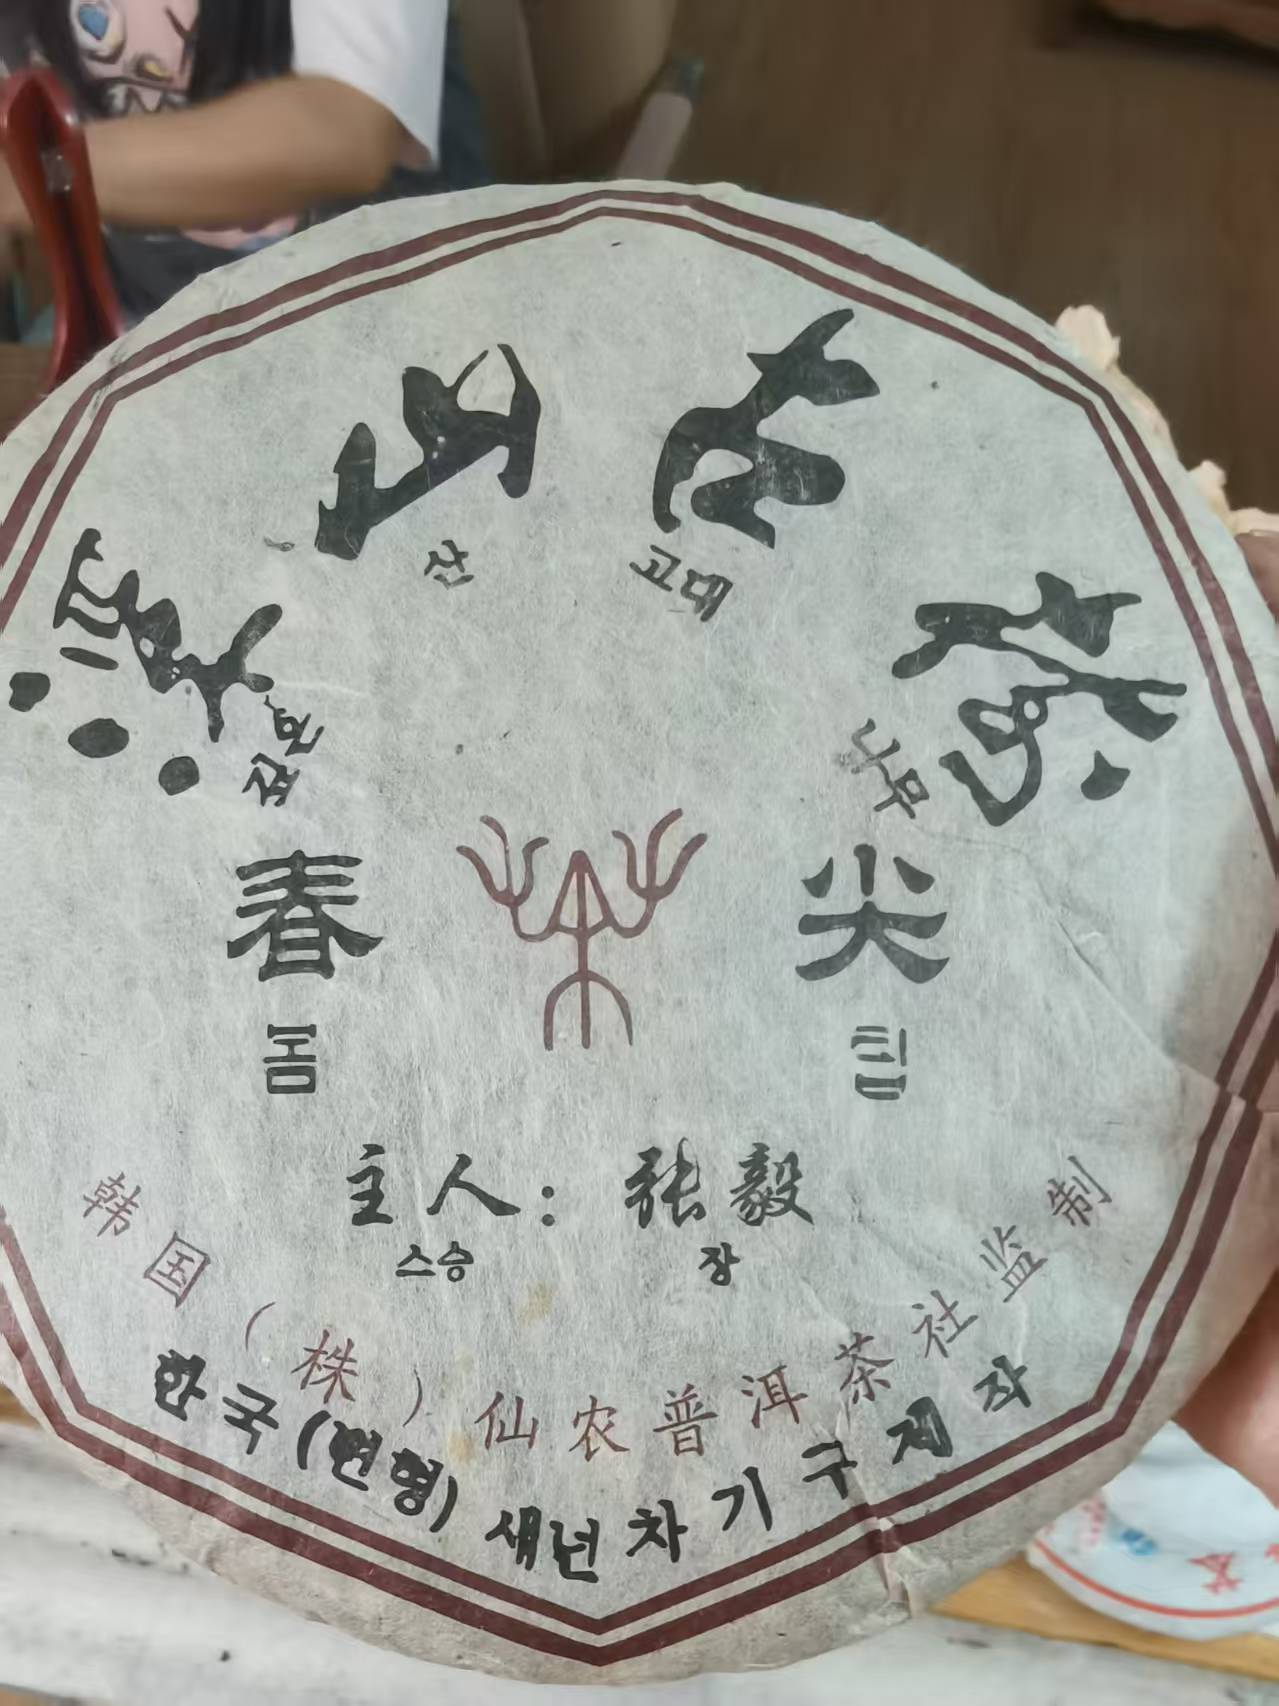 山 古 樹
산 고대 나무
春 尖
봄 팁
主人：张毅
스승 장
韩国（株）仙农普洱茶社监制
한국(현명) 새년차기구제작